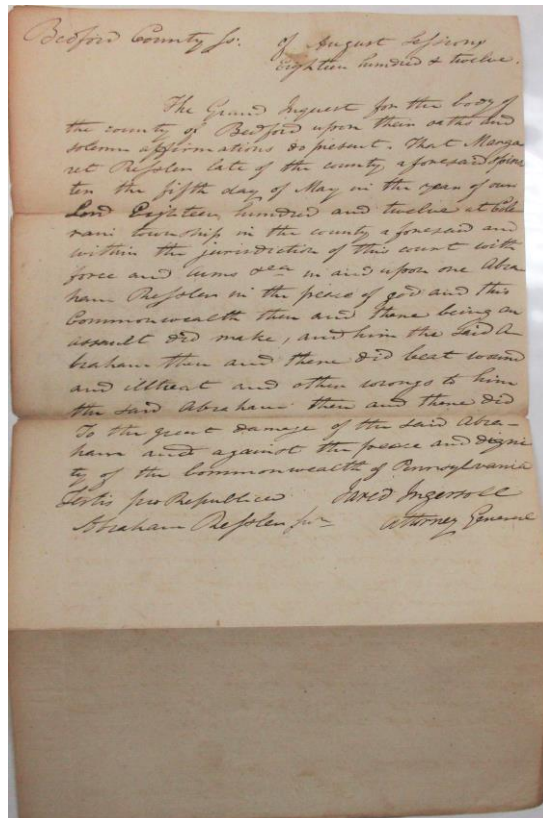 Bedford County ss. of August Sessions
Eighteen hundred & twelve.
The Grand Inquest for the body of
the county of Bedford upon their oaths and
solemn affirmations do present. That Marga-
ret Ressler late of the county aforesaid Spins-
ter the fifth day of May in the year of our
Lord Eighteen hundred and twelve at Cole-
rain township in the county aforesaid and
within the jurisdiction of this court with
force and arms &ca in and upon one Abra-
ham Ressler in the peace of god and this
Commonwealth then and there being an
assault did make, and him the said A-
braham then and there did beat wound
and illtreat and other wrongs to him
the said Abraham then and there did
To the great damage of the said Abra-
ham and against the peace and digni-
ty of the Commonwealth of Pennsylvania
Testis pro Republica Jared Ingersoll
Abraham Ressler Attorney General